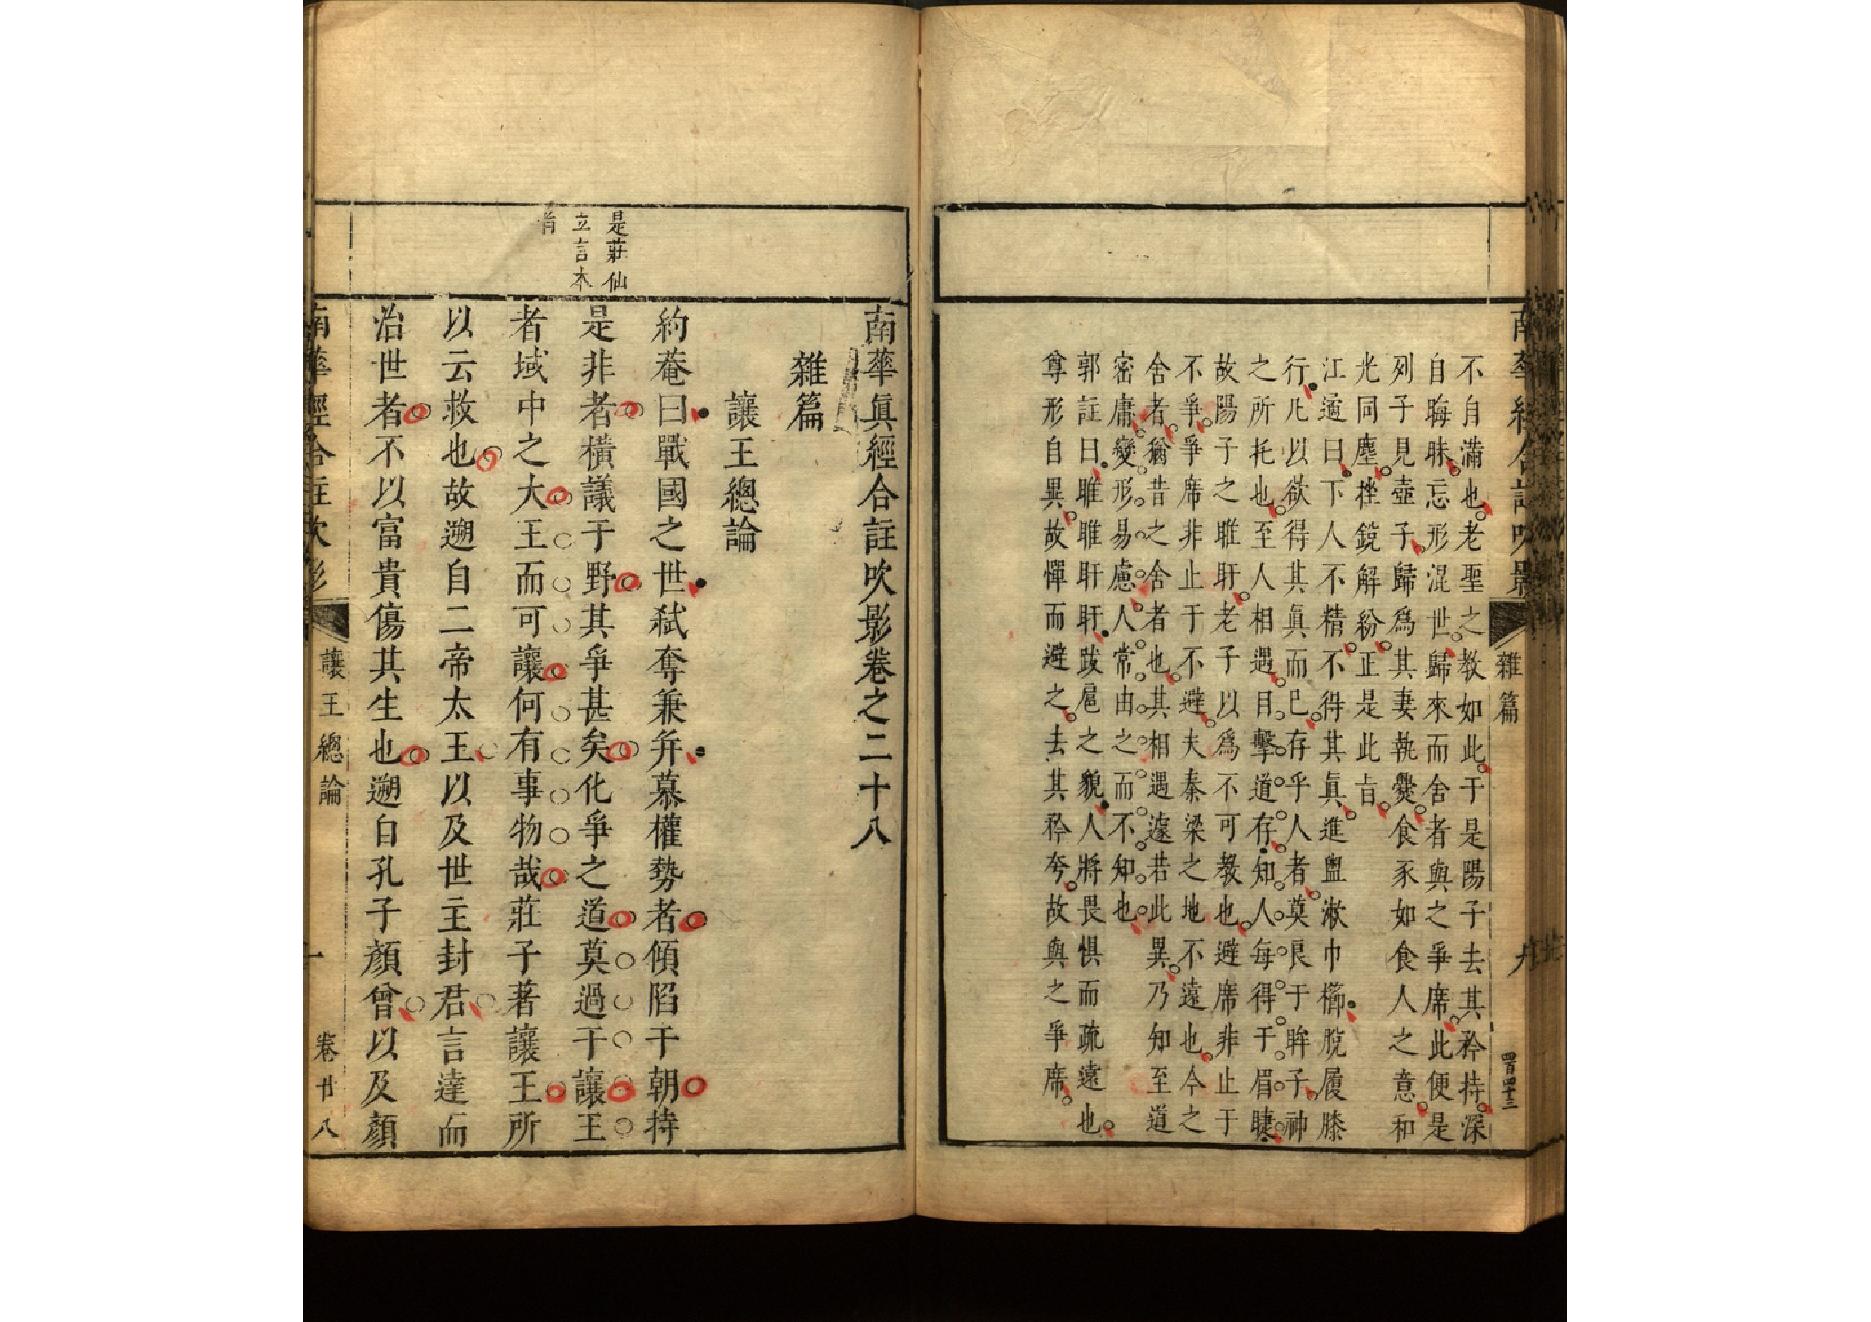 南華經合註吹影
雜篇
四百四十三
不自滿也老聖之教如此于是陽子去其矜持深
自晦昧忘形混世歸來而舍者與之爭席此便是
列子見壺子歸爲其妻執爨食豕如食人之意和
光同塵挫銳解紛正是此旨
江遹曰下人不精不得其眞進盥漱巾櫛脫履膝
行凡以欲得其眞而已存乎人者莫良于眸子神
之所托也至人相遇目擊道存知人每得于眉睫
故陽子之睢盱老子以爲不可教也避席非止于
不爭爭席非止于不避夫秦梁之地不遠也今之
舍者猶昔之舍者也其相遇遽若此異乃知至道
密庸變形易慮人常由之而不知也
郭註曰睢睢盱盱跋扈之貌人將畏惧而疏遠也
尊形自異故憚而避之去其矜夸故與之爭席
南華眞經合註吹影卷之二十八
雜篇
讓王總論
是莊仙
立言本
約菴曰戰國之世弒奪兼并慕權勢者傾陷于朝持
是非者橫議于野其爭甚矣化爭之道莫過于讓王
者域中之大王而可讓何有事物哉莊子著讓王所
以云救也故遡自二帝太王以及世主封君言達而
治世者不以富貴傷其生也遡自孔子顏曾以及顏
南華經合註吹影
讓王總論
一
卷廿八